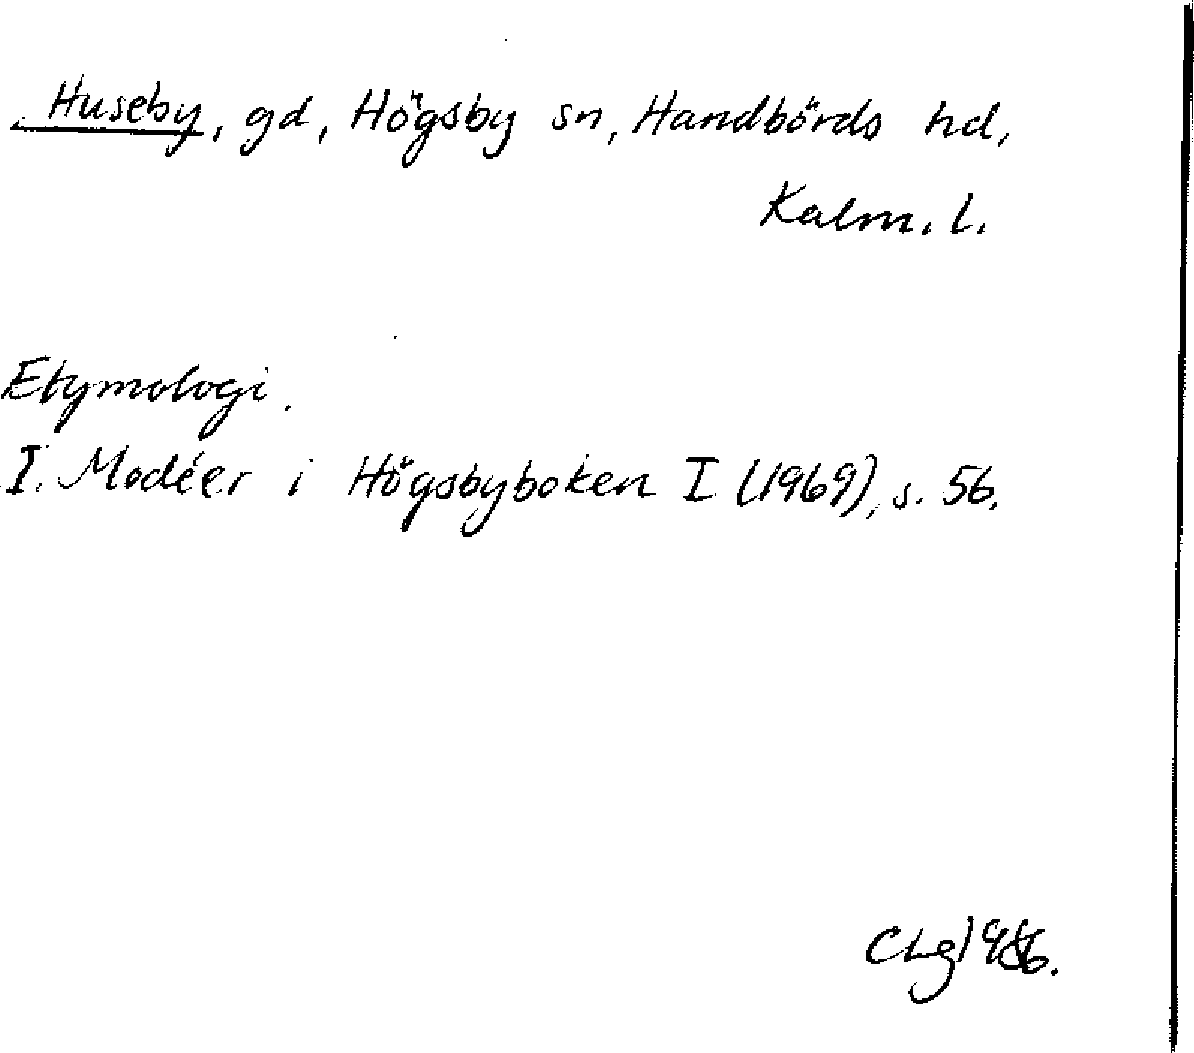 Huseby, gd, Högsby sn, Handbörds hd,
Kalm. l.
Etymologi.
I. Modéer i Högsbyboken I (1969), s. 56.
CLg 1986.